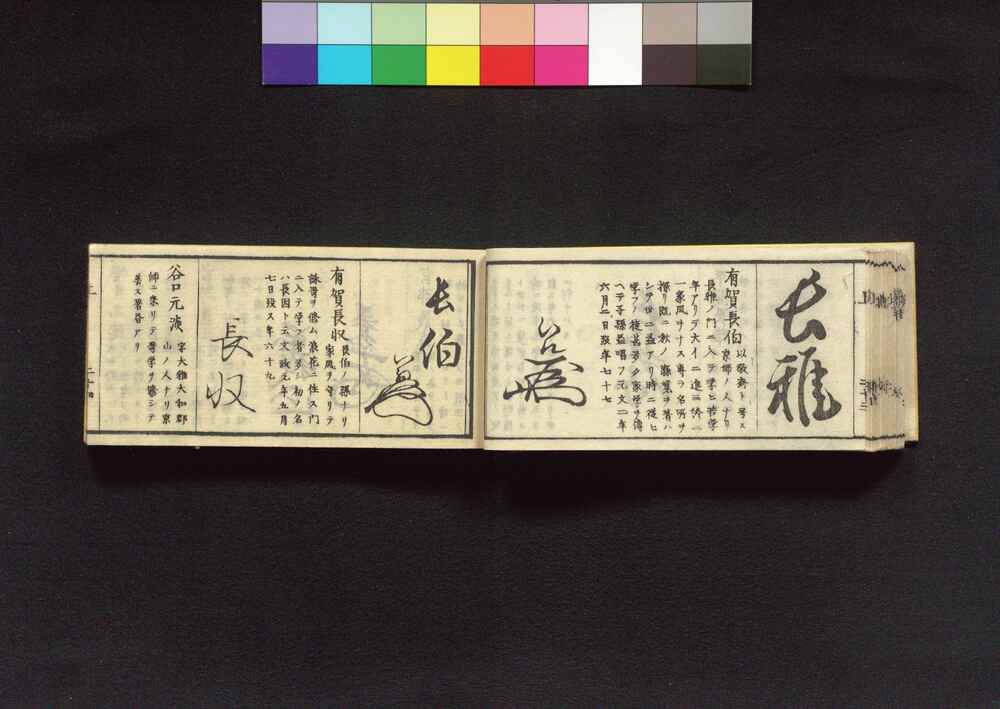 長雅
有賀長伯 以敬斎ト号ス
京師ノ人ナリ
長雅ノ門ニ入テ学ヒ苦学
年アリテ大イニ進ミ終ニ
一家風ヲナス専ラ名所ヲ
探リ既ニ秋ノ寝覚ヲ著ハ
シテ世ニ益アリ時ニ従ヒ
学フノ徒甚多ク家姪ヲ傳
ヘテ子孫益唱フ元文二年
六月二日歿年七十七
長伯
有賀長収 長伯ノ孫ナリ
家風ヲ守リテ
詠哥ヲ修ム浪花ニ住ス門
ニ入テ学フ者多シ初ノ名
ハ長因ト云文政元年五月
七日歿ス年六十九
長収
谷口元淡 字大雅大和郡
山ノ人ナリ京
師ニ来リテ専学ヲ修シテ
著ス署沓アリ